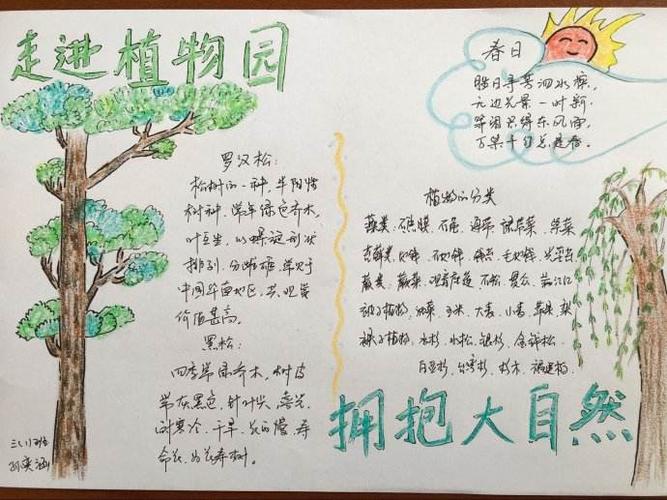 走进植物园
罗汉松:
松树的一种,半阴性
树种,常年绿色乔木,
叶互生,以螺旋形状
排列,分雌雄,常见于
中国华南地区,其观赏
价值甚高。
黑松:
四季常绿乔木,树皮
带灰黑色,针叶尖,喜光,
耐寒冷、干旱,花的慢,寿
命长,为长寿树。
三(1)班
孙奕涵
春日
胜日寻芳泗水滨,
无边光景一时新.
等闲识得东风面,
万紫千红总是春.
植物的分类
藻类、石莼、海带、绿
苔藓类
蕨类、蕨菜、观音座莲、石松
被子植物、油菜、玉米、大枣、小麦、苹果、梨
裸子植物、水杉、水松、银杉、金钱松
百豆杉、台湾杉、杉木、福建柏
拥抱大自然